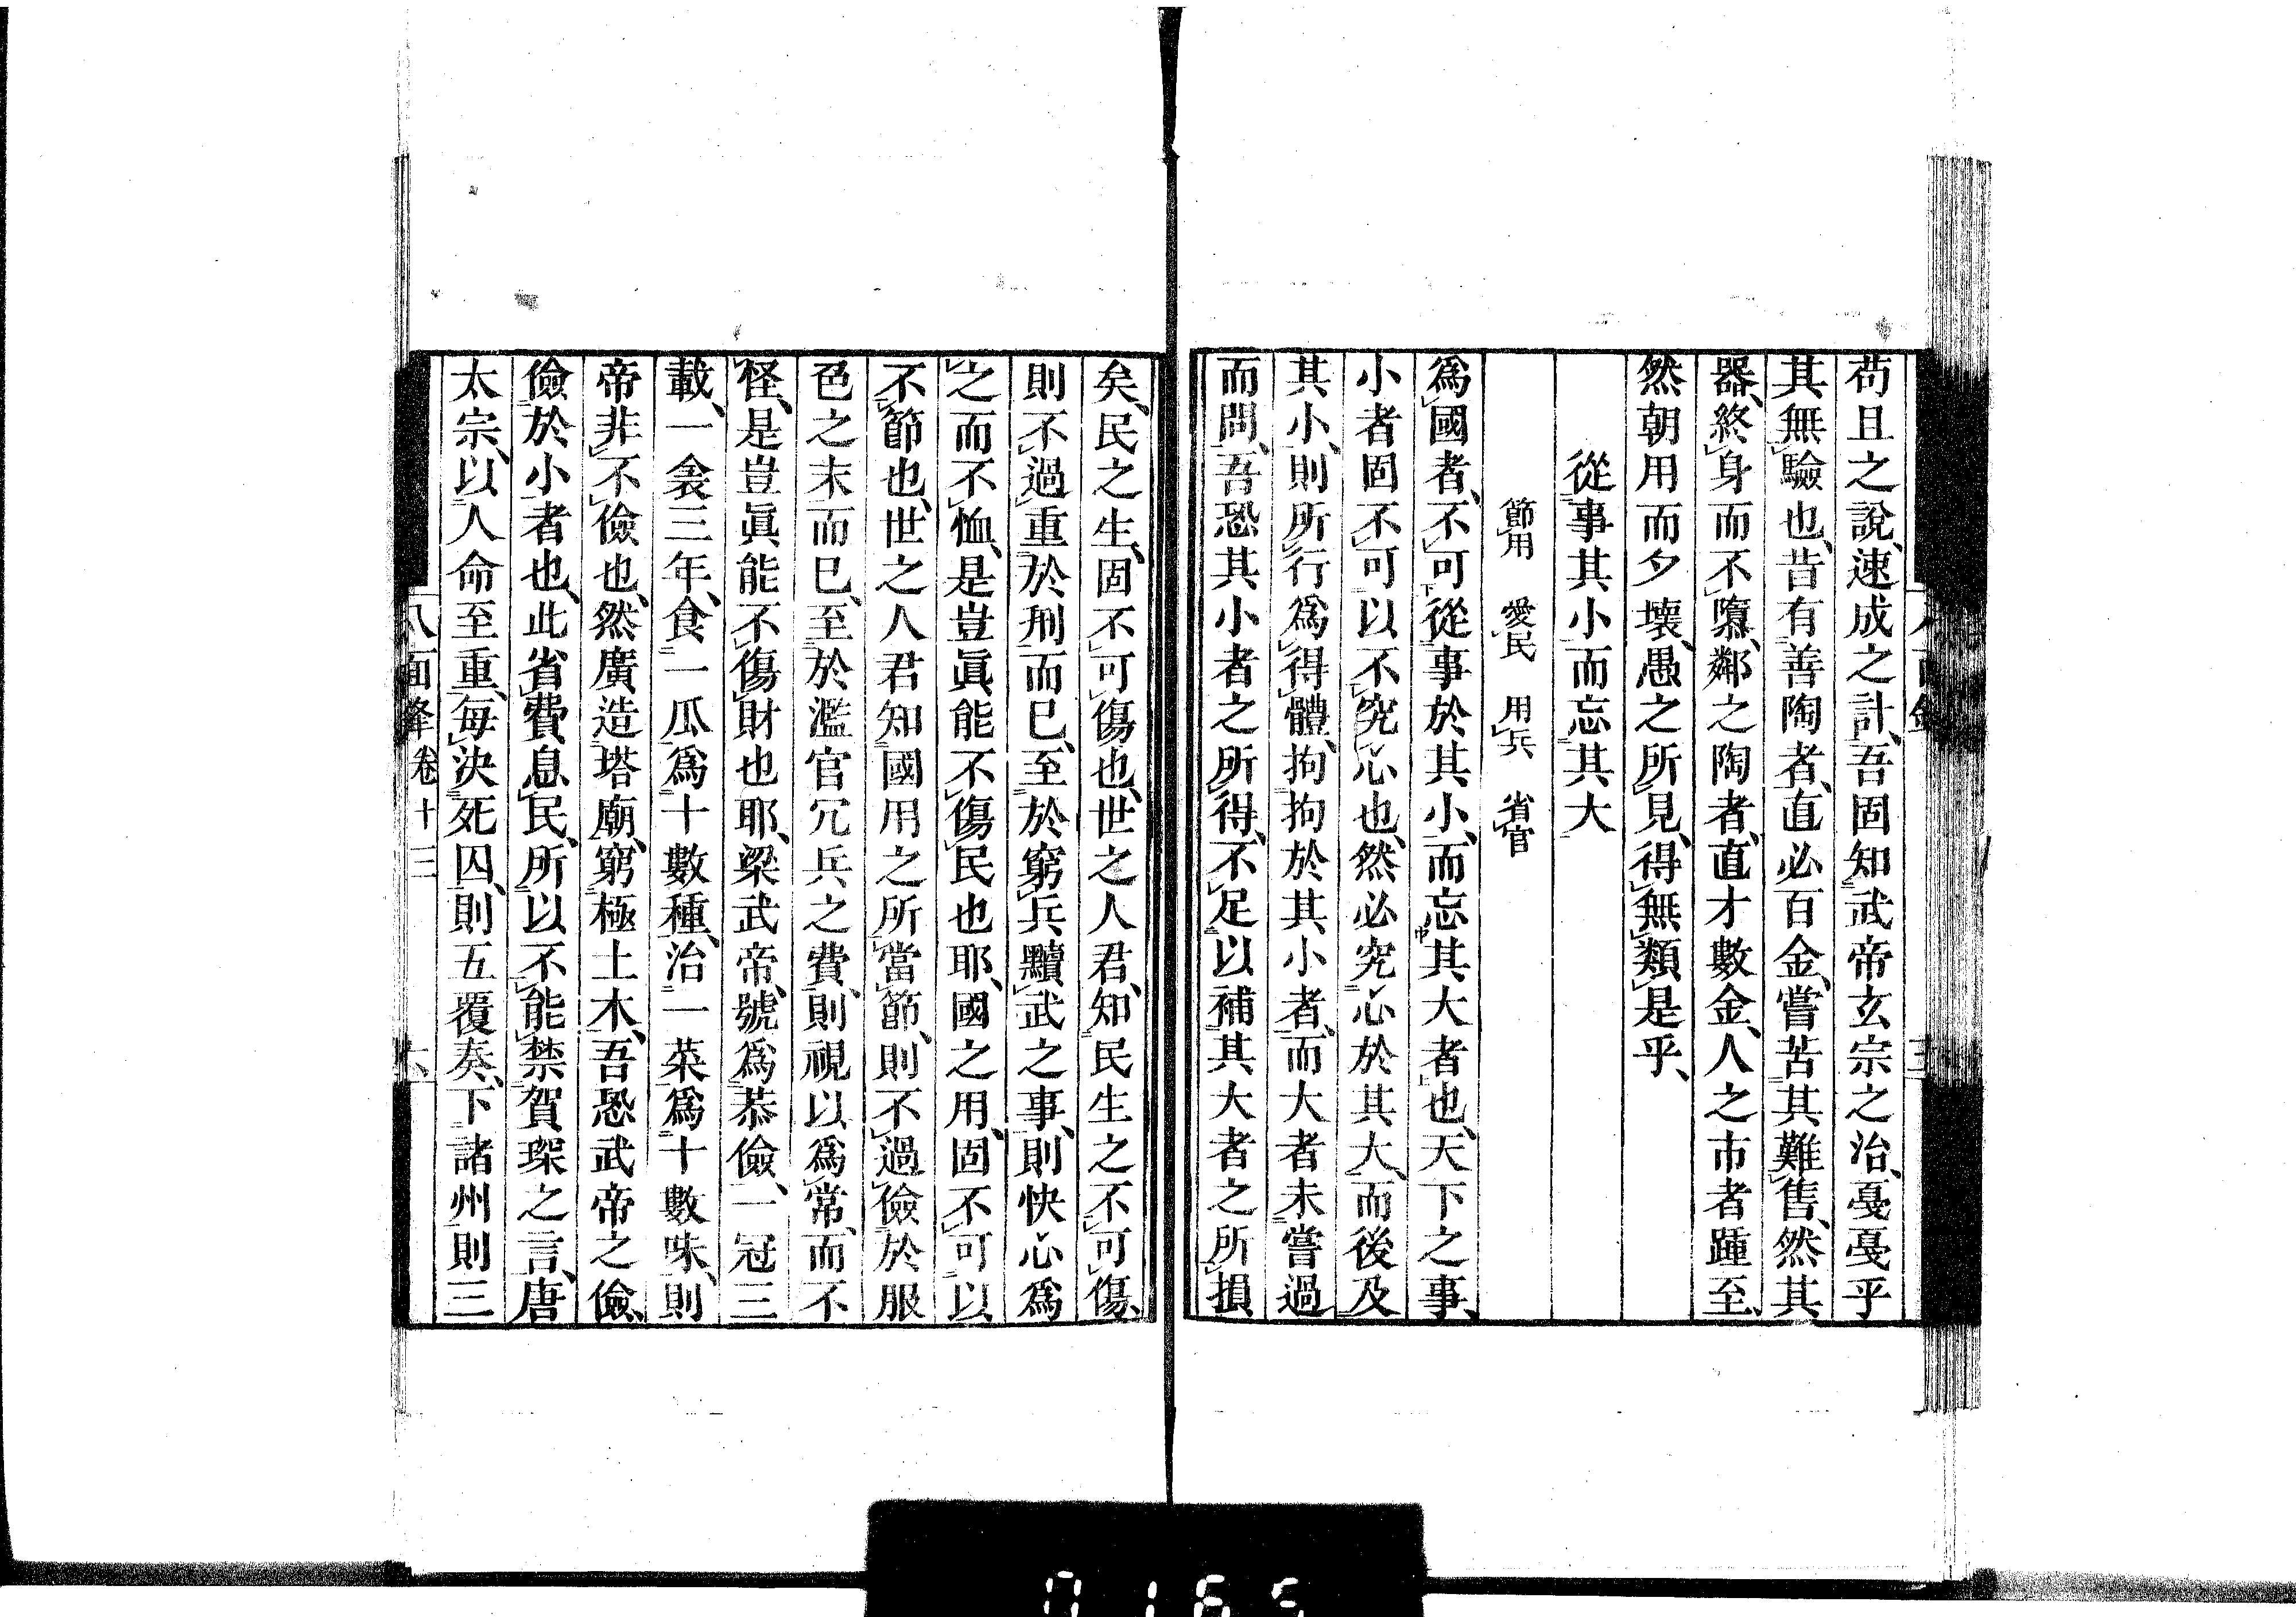 苟且之說、速成之計、吾固知武帝玄宗之治、戞戞乎
其無驗也、昔有善陶者、直必百金、嘗苦其難售、然其
器、終身而不隳、鄰之陶者、直才數金、人之市者踵至、
然朝用而夕壞、愚之所見、得無類是乎、
從事其小而忘其大
節用 愛民 用兵 省官
爲國者、不可從事於其小、而忘其大者也、天下之事、
小者固不可以不究心也、然必究心於其大、而後及
其小、則所行爲得體、拘拘於其小者、而大者未嘗過
而問、吾恐其小者之所得、不足以補其大者之所損
矣、民之生、固不可傷也、世之人君、知民生之不可傷、
則不過重於刑而已、至於窮兵黷武之事、則快心爲
之而不恤、是豈眞能不傷民也耶、國之用、固不可以
不節也、世之人君知國用之所當節、則不過儉於服
色之末而已、至於濫官冗兵之費、則視以爲常、而不
怪、是豈眞能不傷財也耶、梁武帝、號爲恭儉、一冠三
載、一衾三年、食一瓜爲十數種、治一菜爲十數味、則
帝非不儉也、然廣造塔廟、窮極土木、吾恐武帝之儉、
儉於小者也、此省費息民、所以不能禁賀琛之言、唐
太宗、以人命至重、每決死囚、則五覆奏、下諸州則三
八面鋒 卷十三 六